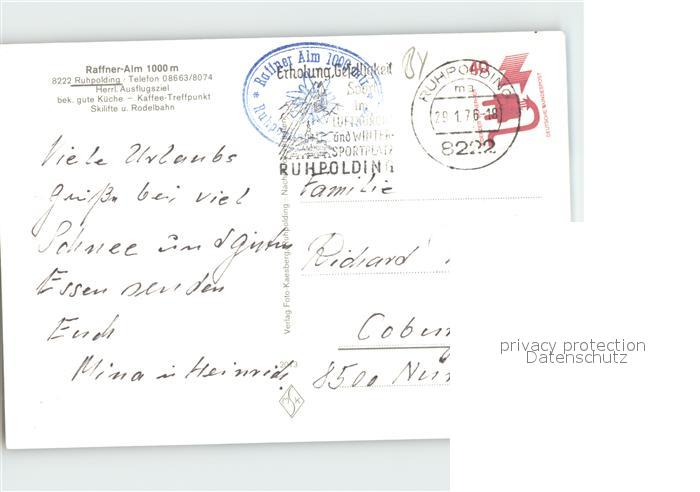 Raffner-Alm 1000 m
8222 Ruhpolding · Telefon 08663/8074
Herrl. Ausflugsziel
bek. gute Küche – Kaffee-Treffpunkt
Skilifte u. Rodelbahn
* Raffner Alm 1000 m *
Erholung, Geselligkeit
Sport
im
LUFTKUR-
und WINTER-
SPORTPLATZ
RUHPOLDING
BY
RUHPOLDING
ma
29.1.76-18
8222
40
DEUTSCHE BUNDESPOST
Viele Urlaubs
Grüße bei viel
Schnee und gutem
Essen senden
Euch
Mina u Heinrich
Verlag Foto Kaesberg, Ruhpolding
Familie
Richard
8500 Nür
privacy protection
Datenschutz